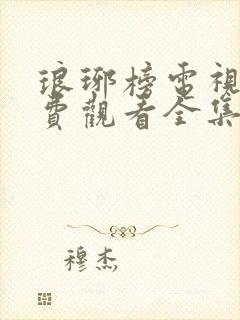 琅琊榜電視
費觀看全集
穆杰